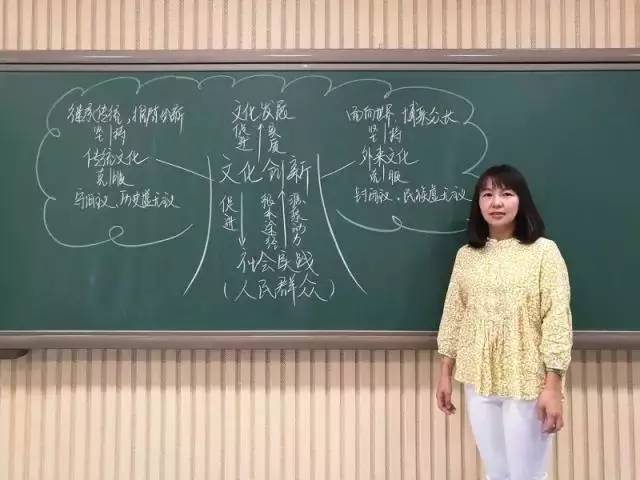 继承传统，推陈出新
坚持
传统文化
克服
守旧主义、历史虚无主义
文化发展
促进
实质
文化创新
促进
根本途径
源泉动力
社会实践
（人民群众）
面向世界、博采众长
坚持
外来文化
克服
封闭主义、民族虚无主义